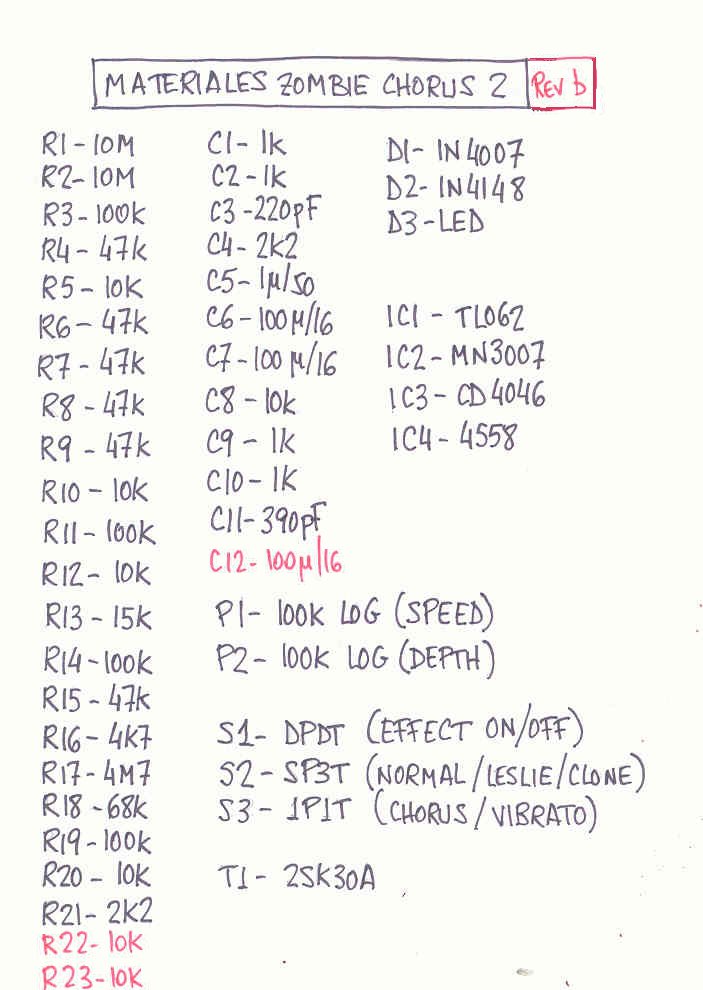 MATERIALES ZOMBIE CHORUS 2 REV b
R1 - 10M
R2 - 10M
R3 - 100k
R4 - 47k
R5 - 10K
R6 - 47k
R7 - 47k
R8 - 47k
R9 - 47k
R10 - 10k
R11 - 100K
R12 - 10k
R13 - 15k
R14 - 100k
R15 - 47k
R16 - 4K7
R17 - 4M7
R18 - 68k
R19 - 100k
R20 - 10K
R21 - 2K2
R22 - 10K
R23 - 10K
C1 - 1k
C2 - 1k
C3 - 220pF
C4 - 2K2
C5 - 1µ/50
C6 - 100µ/16
C7 - 100µ/16
C8 - 10k
C9 - 1K
C10 - 1K
C11 - 390pF
C12 - 100µ/16
D1 - 1N4007
D2 - 1N4148
D3 - LED
IC1 - TL062
IC2 - MN3007
IC3 - CD4046
IC4 - 4558
P1 - 100K LOG (SPEED)
P2 - 100K LOG (DEPTH)
S1 - DPDT (EFFECT ON/OFF)
S2 - SP3T (NORMAL/LESLIE/CLONE)
S3 - 1P1T (CHORUS/VIBRATO)
T1 - 2SK30A